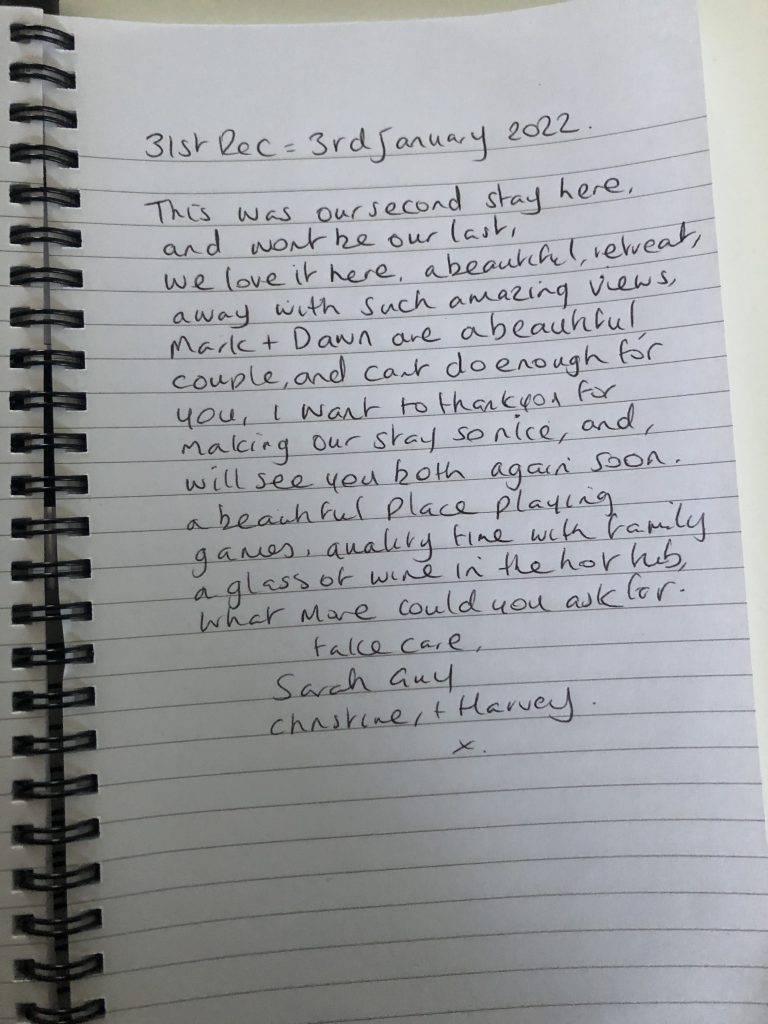 31st Dec = 3rd January 2022.
This was our second stay here,
and wont be our last,
we love it here, a beautiful, retreat,
away with such amazing views,
Mark + Dawn are a beautiful
couple, and cant do enough for
you, I want to thankyou for
making our stay so nice, and,
will see you both again soon.
a beautiful place playing
games, quality time with family
a glass of wine in the hot tub,
what more could you ask for.
take care,
Sarah Guy
Christine, + Harvey.
x.